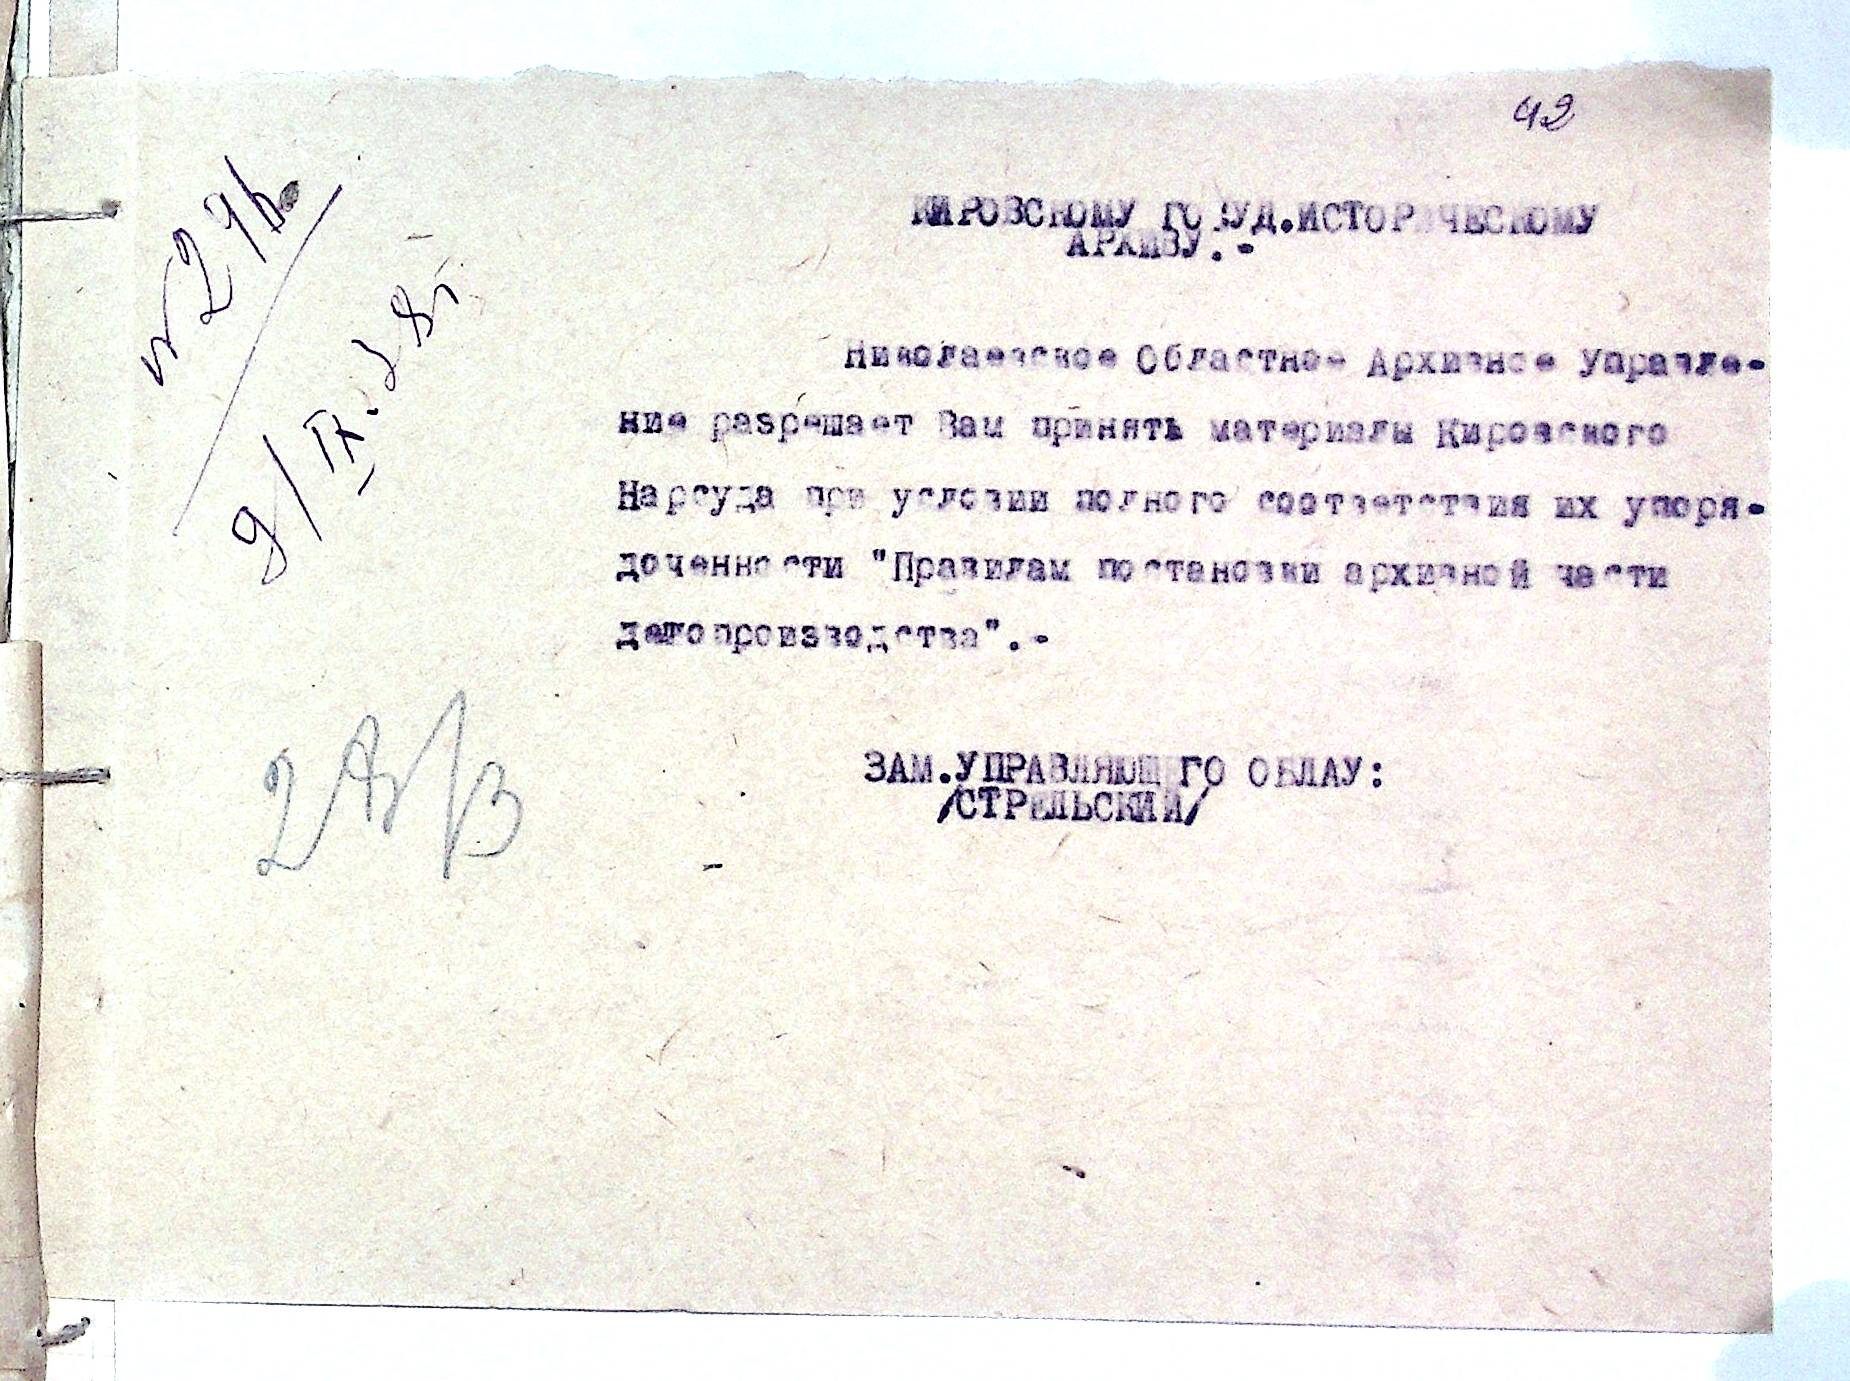 42
№ 296.
9/IX-38 г.
КИРОВСКОМУ ГОСУД.ИСТОРИЧЕСКОМУ
АРХИВУ.-
Николаевское Областное Архивное Управле-
ние разрешает Вам принять материалы Кировского
Нарсуда при условии полного соответствия их упоря-
доченности "Правилам постановки архивной части
делопроизводства".-
ЗАМ.УПРАВЛЯЮЩЕГО ОБЛАУ:
/СТРЕЛЬСКИЙ/